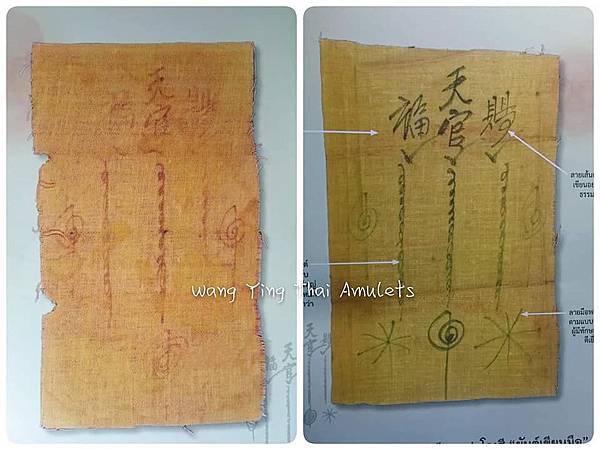 天
福官賜
天
福官賜
ลายเส้น
เขียนอย
ธรรม
Wang Ying Thai Amulets
ลายมือพ
ตามแบบ
ผู้มีทักษ
天
福官賜
"ยันต์เขียนมือ"